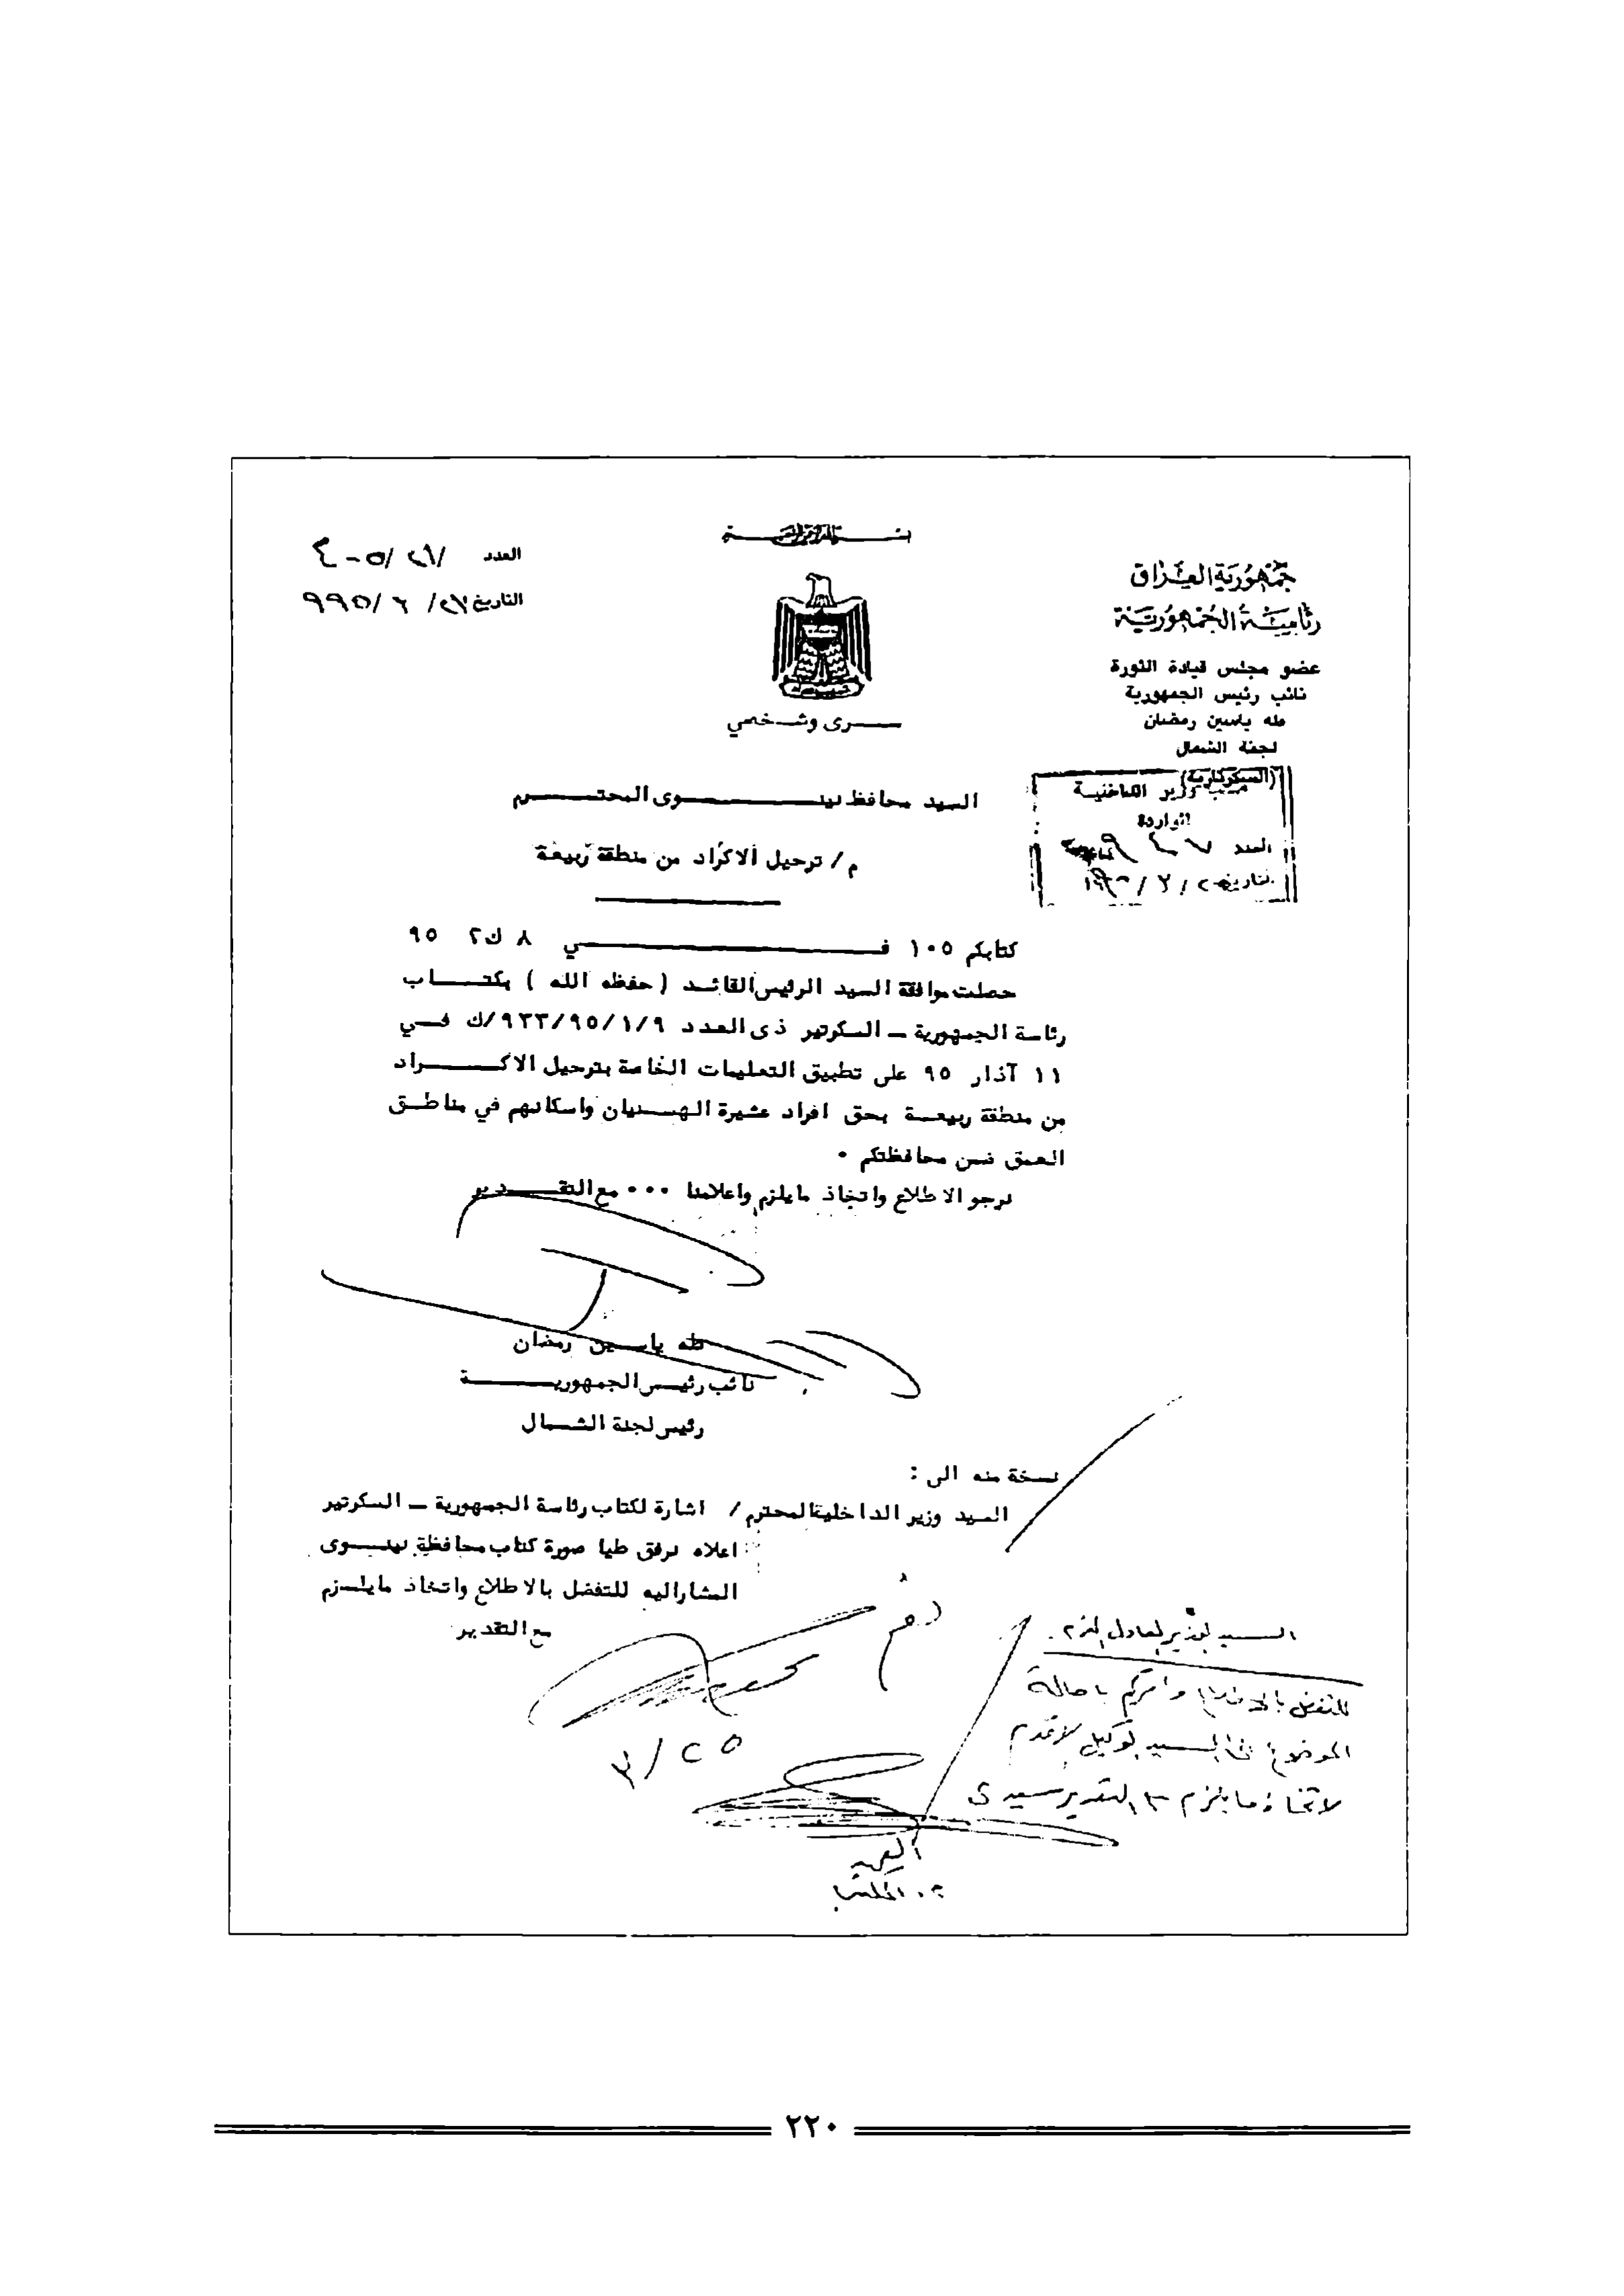 بسم الله الرحمن الرحيم
جمهورية العراق
رئاسة الجمهورية
عضو مجلس قيادة الثورة
نائب رئيس الجمهورية
طه ياسين رمضان
لجنة الشمال
(السكرتارية)
العدد
التاريخ
ســرى وشــخصي
مكتب وزير الداخلية
الواردة
العدد
التاريخ
السيد محافظ نينــــوى المحتــــرم
م/ ترحيل الاكراد من منطقة ربيعة
كتابكم ١٠٥ فــــي ٨ ك٢ ٩٥
حصلت موافقة السيد الرئيس القائـد (حفظه الله) بكتــاب
رئاسة الجمهورية ـ السكرتير ذى العدد ٩/١/٩٥/٩٣٣/ك فــي
١١ آذار ٩٥ على تطبيق التعليمات الخاصة بترحيل الاكــراد
من منطقة ربيعــة بحق افراد عشيرة الهســنيان واسكانهم في مناطــق
العمق ضمن محافظتكم .
نرجو الاطلاع واتخاذ مايلزم واعلامنا ... مع التقــدير
طه ياســين رمضان
نائب رئيــس الجمهوريــة
رئيس لجنة الشــمال
نسخة منه الى :
السيد وزير الداخلية المحترم/ اشارة لكتاب رئاسة الجمهورية ـ السكرتير
اعلاه نرفق طيا صورة كتاب محافظة نينــوى
المشار اليه للتفضل بالاطلاع واتخاذ مايلــزم
مع التقدير
السيد الوزير
للتفضل بالاطلاع وامركم باحالة
الموضوع الى السيد الوكيل الاقدم
لاتخاذ ما يلزم مع التقدير سيدي
٢٥/٣
العميد
م. المكتب
٢٢٠